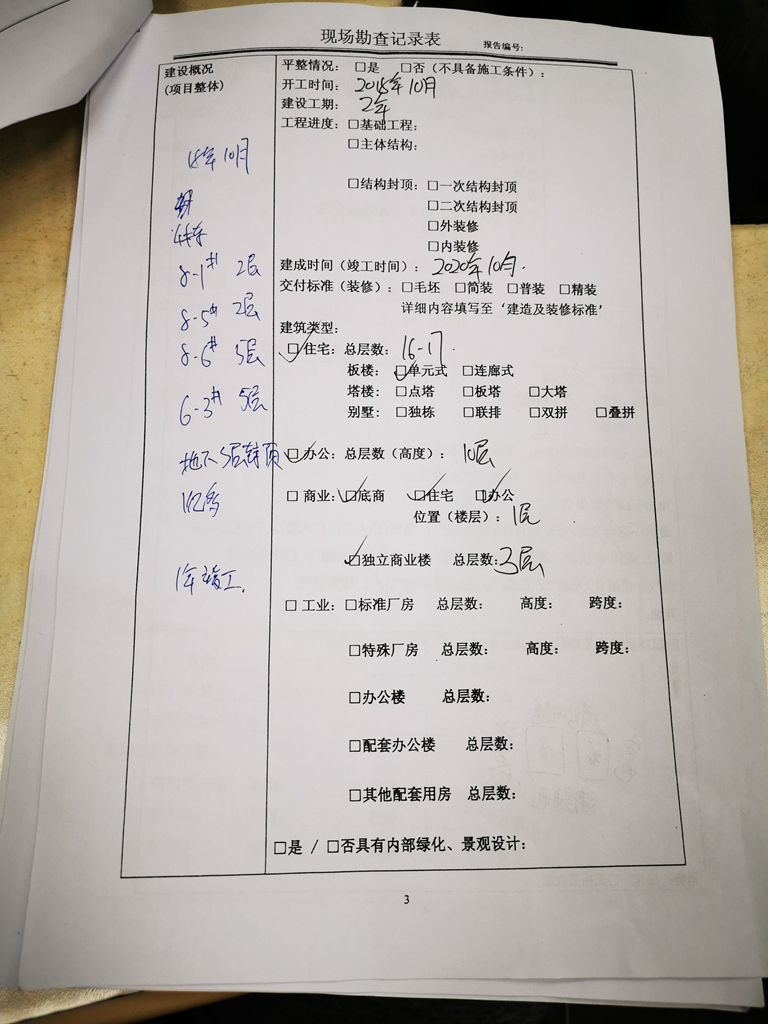 现场勘查记录表 报告编号:
建设概况
(项目整体)
18年10月
8-1# 2层
8-5# 2层
8-6# 5层
6-3# 5层
地下5层封顶
1亿多
1年竣工.
平整情况: □是 □否(不具备施工条件):
开工时间: 2018年10月
建设工期: 2年
工程进度: □基础工程:
□主体结构:
□结构封顶: □一次结构封顶
□二次结构封顶
□外装修
□内装修
建成时间(竣工时间): 2020年10月.
交付标准(装修): □毛坯 □简装 □普装 □精装
详细内容填写至‘建造及装修标准’
建筑类型:
☑住宅: 总层数: 16-17.
板楼: ☑单元式 □连廊式
塔楼: □点塔 □板塔 □大塔
别墅: □独栋 □联排 □双拼 □叠拼
☑办公: 总层数(高度): 10层
□ 商业: ☑底商 ☑住宅 ☑办公
位置(楼层): 1层
☑独立商业楼 总层数: 3层
□ 工业: □标准厂房 总层数: 高度: 跨度:
□特殊厂房 总层数: 高度: 跨度:
□办公楼 总层数:
□配套办公楼 总层数:
□其他配套用房 总层数:
□是 / □否具有内部绿化、景观设计:
3